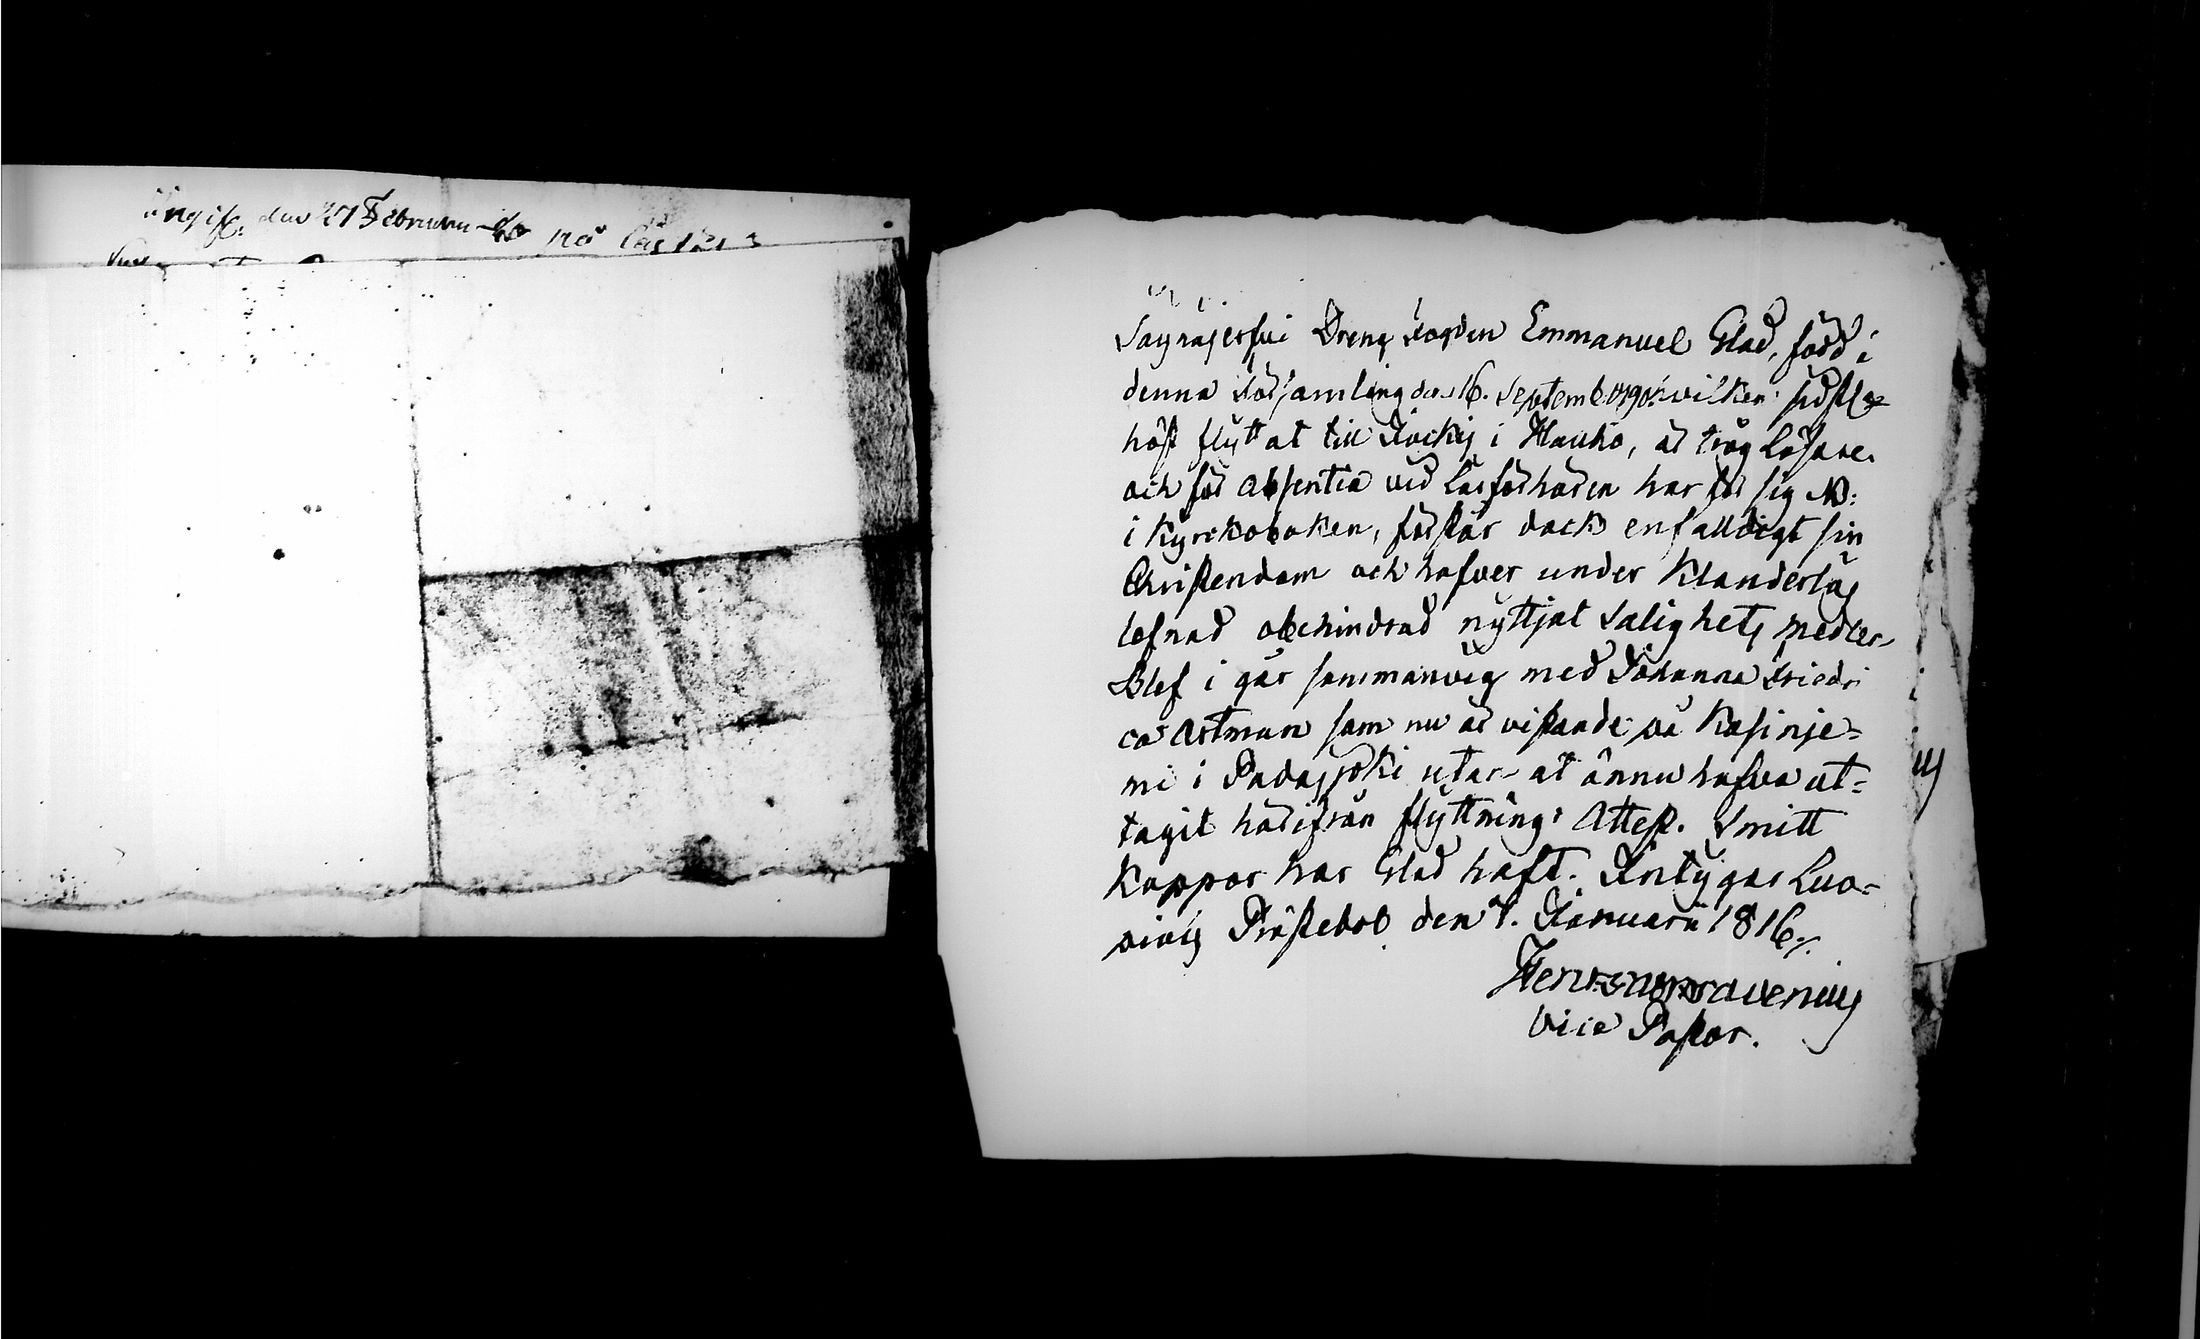 den 27 Februari
Sagnäjerfvi Dreng Fogden Emmanuel Glad, född i
denna Församling den 16. September 1790. hvilken sidstl.
höst flyttat till Kockis i Hauho, är trög läsare
och för absentia vid Läsförhören har för sig NB:
i Kyrckoboken, förstår dock enfalldigt sin
Christendom och hafver under Klanderlös
lefnad obehindrad nyttjat Salighets medlen
Blef i går sammanvigd med Johanna Friedri
ca Artman som nu är vistande på Kasinje=
mi i Padasjoki utan at ännu hafva ut=
tagit härifrån flyttnings Attest. Smitt
Koppor har Glad haft. Intÿgar Luo-
piois Prästebol den 1. Januarii 1816./.
Vice Pastor.